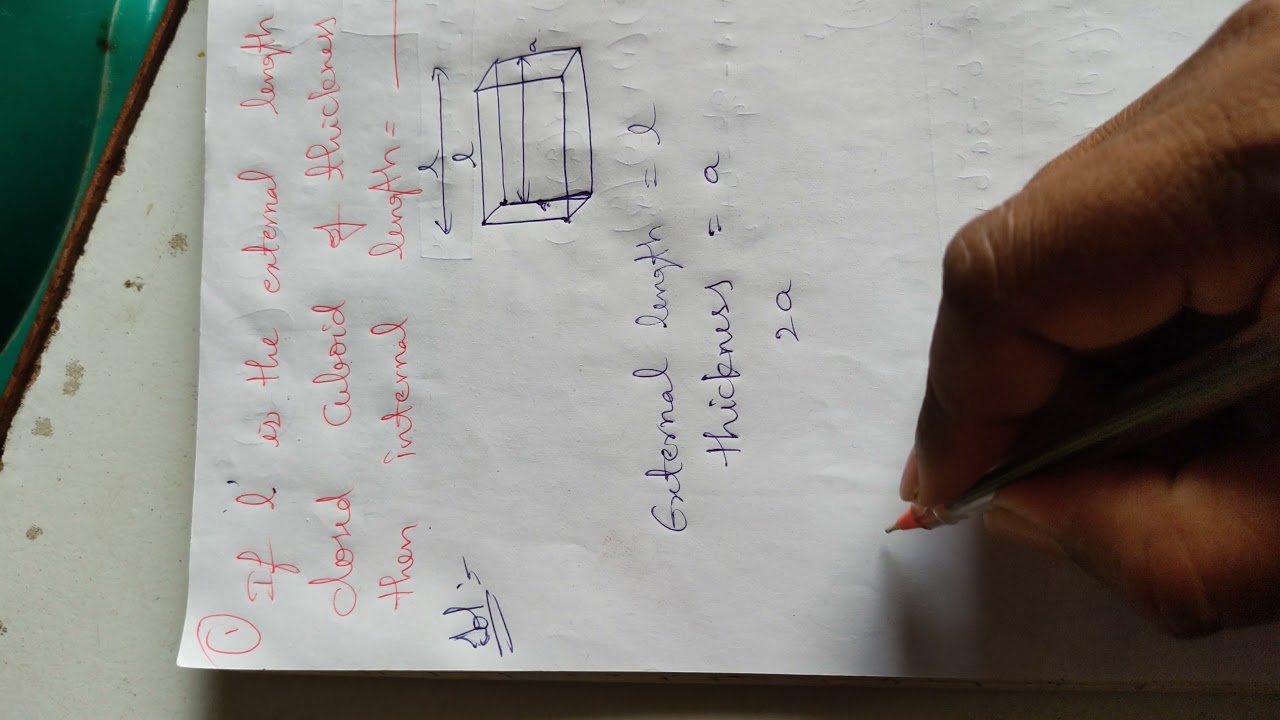 1
If 'l' is the external length
closed cuboid of thickness
then internal length = 
l
a
External length = l
thickness = a
2a
Sol :-